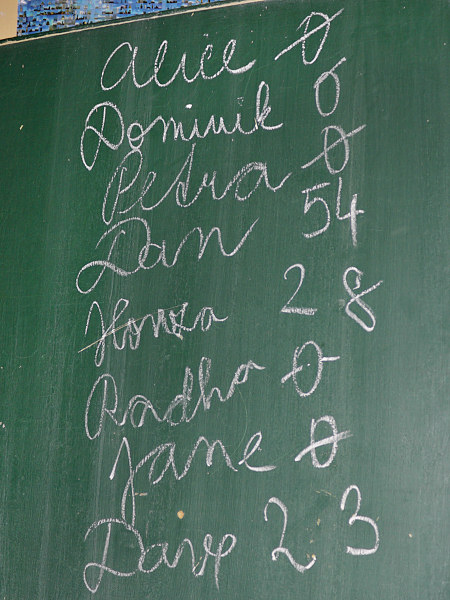 Alice 0
Dominik 0
Petra 0
Dan 54
Honza 2 8
Radha 0
Jane 0
Dave 2 3